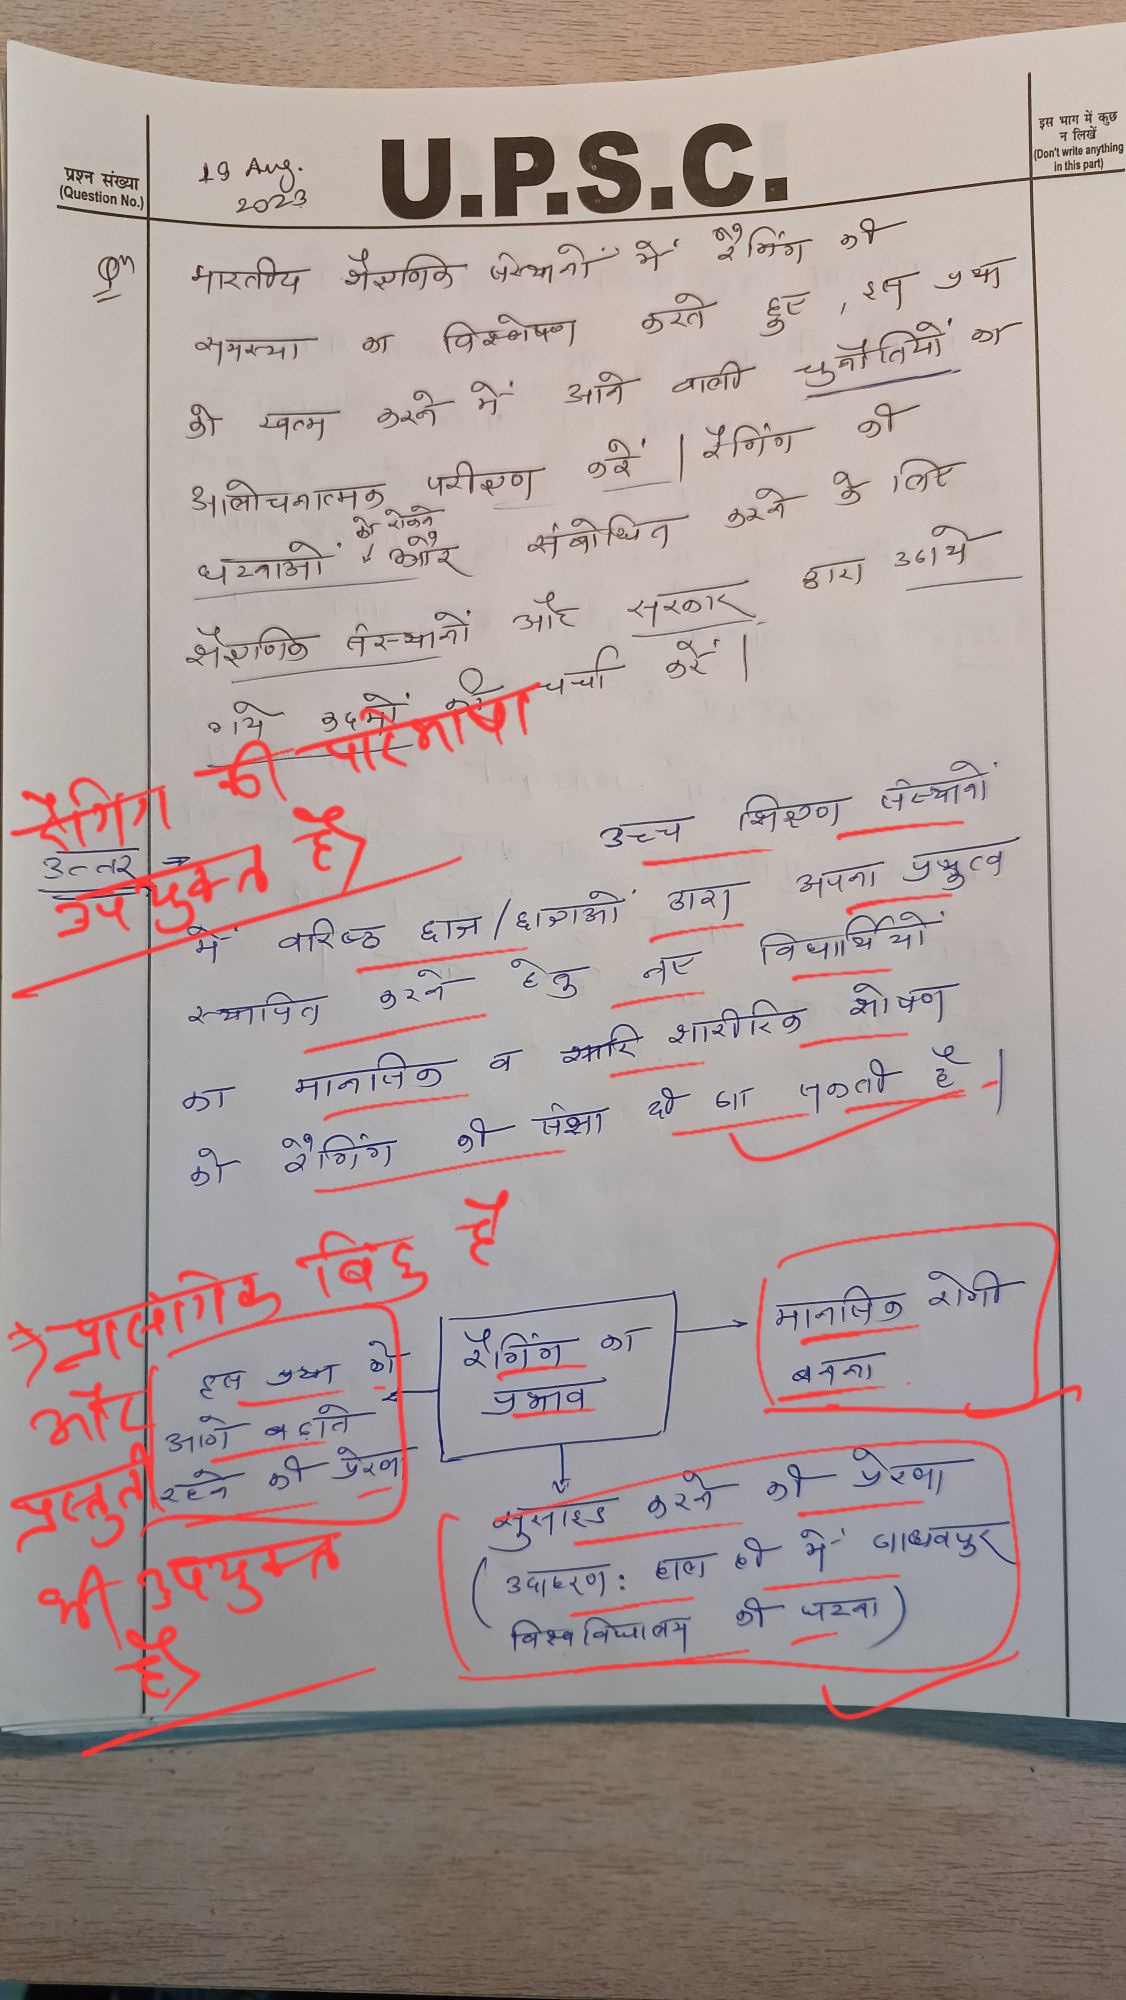 प्रश्न संख्या
(Question No.)
19 Aug.
2023
U.P.S.C.
इस भाग में कुछ
न लिखें
(Don't write anything
in this part)
Qⁿ
भारतीय शैक्षणिक संस्थानों में रैगिंग की
समस्या का विश्लेषण करते हुए, इस प्रथा
को खत्म करने में आने वाली चुनौतियों का
आलोचनात्मक परीक्षण करें | रैगिंग की
घटनाओं को रोकने और संबोधित करने के लिए
शैक्षणिक संस्थानों और सरकार द्वारा उठाये
गये कदमों की चर्चा करें |
रैगिंग की परिभाषा
उपयुक्त है
उत्तर →
उच्च शिक्षण संस्थानों
में वरिष्ठ छात्र/छात्राओं द्वारा अपना प्रभुत्व
स्थापित करने हेतु नए विद्यार्थियों
का मानसिक व शारीरिक शोषण
को रैगिंग की संज्ञा दी जा सकती है |
→ प्रासंगिक बिंदु है
और
प्रस्तुती
भी उपयुक्त
है
रैगिंग का
प्रभाव
मानसिक रोगी
बनना
इस प्रथा को
आगे बढ़ाते
रहने की प्रेरणा
सुसाइड करने की प्रेरणा
(उदाहरण: हाल ही में जाधवपुर
विश्वविद्यालय की घटना)